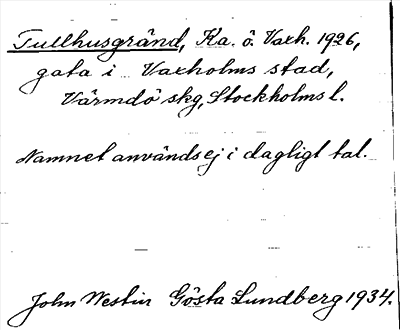 Tullhusgränd, Ka. ö. Vaxh. 1926,
gata i Vaxholms stad,
Värmdö skg, Stockholms l.
Namnet användes ej i dagligt tal.
John Westin Gösta Lundberg 1934.